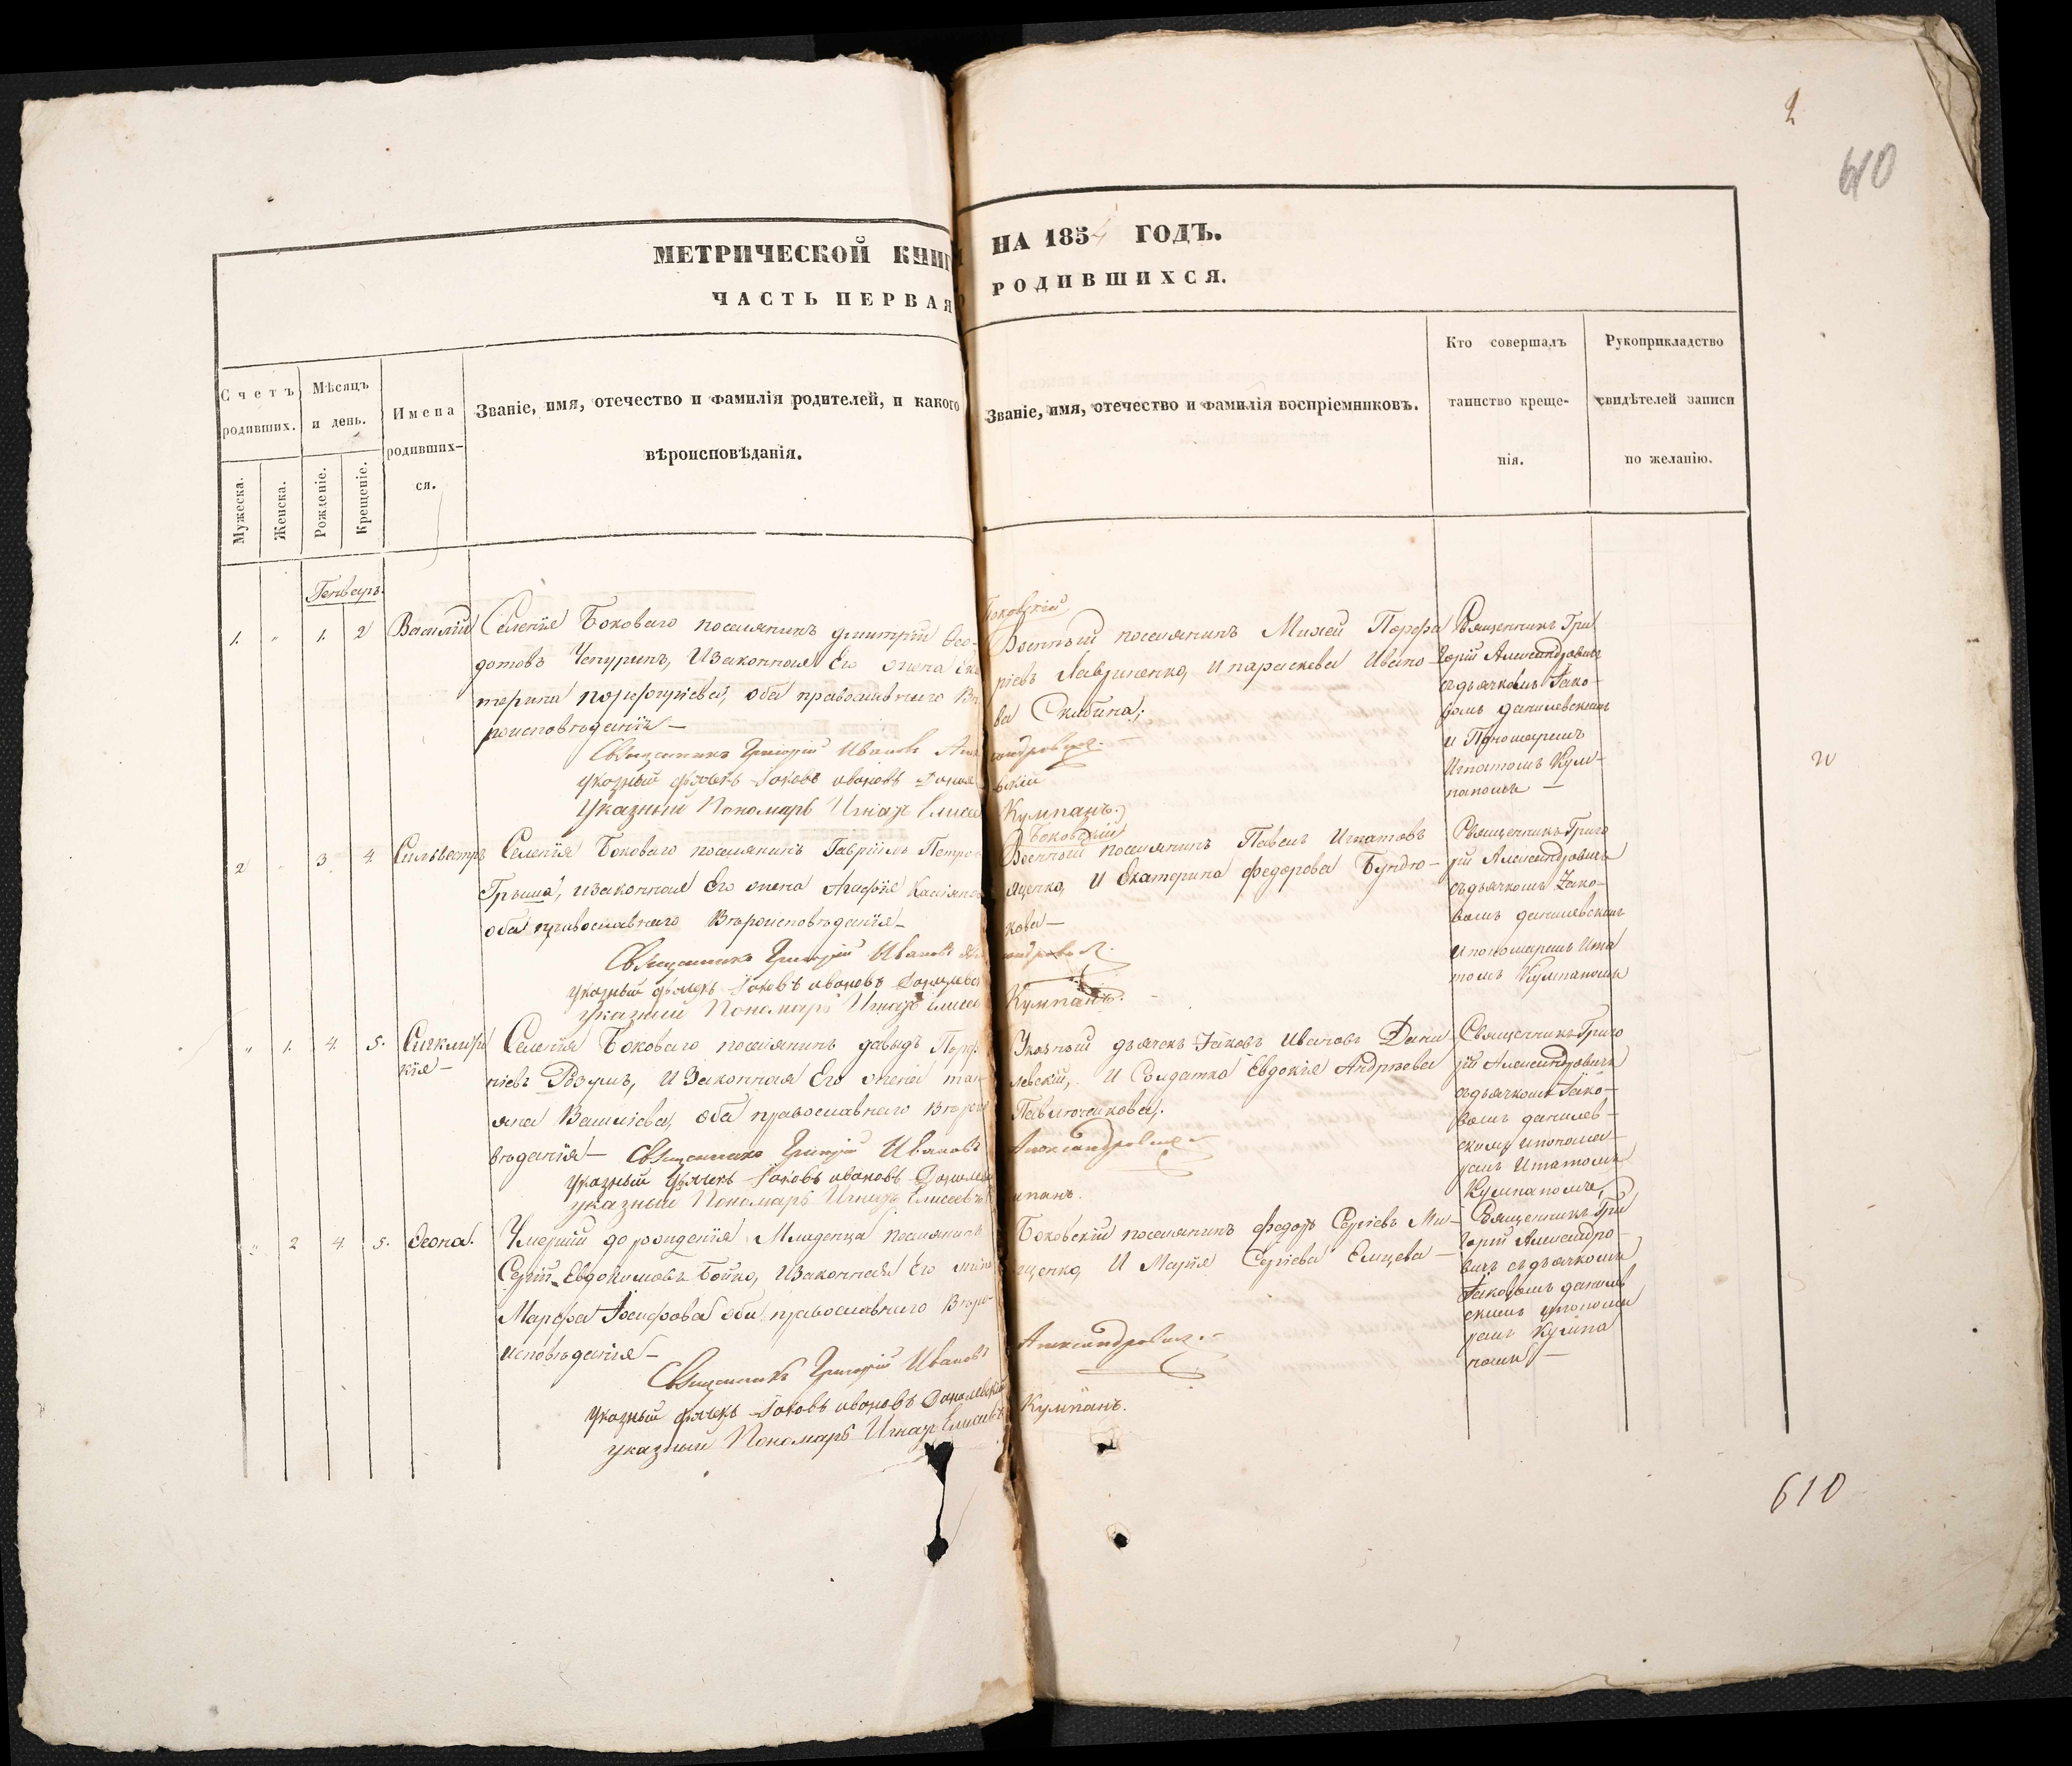 2
610
МЕТРИЧЕСКОЙ КНИГИ НА 1854 ГОДЪ.
ЧАСТЬ ПЕРВАЯ О РОДИВШИХСЯ.
Счетъ родивших.
Мужеска.
Женска.
Мѣсяцъ и день.
Рожденіе.
Крещеніе.
Имена родившихся.
Званіе, имя, отечество и фамилія родителей, и какого
вѣроисповѣданія.
Званіе, имя, отечество и фамилія воспріемниковъ.
Кто совершалъ
таинство креще-
нія.
Рукоприкладство
свидѣтелей записи
по желанію.
Генварь
1. " 1. 2 Василій
Селенія Боковаго поселянинъ Дмитрій Ѳео-
дотовъ Чепуринъ, и законная Его жена Ека
терина Порфиріева, оба православнаго Вѣ
роисповѣданія —
Священникъ Григорій Ивановъ Александровичъ
указный дьячекъ Іаковъ Ивановъ Данилевскій
Указный Пономарь Игнатъ Елисеевъ Кумпанъ.
Боковскій
Военный поселянинъ Михей Порфи
ріевъ Лавриненко, и Параскева Ивано
ва Скибина;
Священникъ Гри
горій Александровичъ
съ дьячкомъ Іако-
вомъ Данилевскимъ
и Пономаремъ
Игнатомъ Кум-
паномъ —
2 " 3 4. Сильвестръ
Селенія Боковаго поселянинъ Гавріилъ Петровъ
Грыша, и законная Его жена Агафія Касіянова
оба православнаго Вѣроисповѣданія —
Священникъ Григорій Ивановъ Александровичъ
указный дьячекъ Іаковъ Ивановъ Данилевскій
указный Пономарь Игнатъ Елисеевъ Кумпанъ.
Боковскій
Военный поселянинъ Павелъ Игнатовъ
яценко, и Екатерина Федорова Бундю-
кова —
Священникъ Григо
рій Александровичъ
съ дьячкомъ Іако-
вомъ Данилевскимъ
и пономаремъ Игна
томъ Кумпаномъ
" 1. 4. 5.
Селенія Боковаго поселянинъ Давыдъ
Розумъ, и Законная Его жена тат
яна Василіева, оба православнаго Вѣроиспо
вѣданія — Священникъ Григорій Ивановъ Александровичъ
указный дьячекъ Іаковъ Ивановъ Данилевскій
указный Пономарь Игнатъ Елисеевъ Кумпанъ.
Указный дьячекъ Іаковъ Ивановъ Дани
левскій, и Солдатка Евдокія Андреева
Павлюченкова.
Священникъ Григо
рій Александровичъ
съ дьячкомъ Іако-
вомъ Данилев-
скимъ и понома-
ремъ Игнатомъ
Кумпаномъ,
" 2 4. 5. Ѳеона.
Умершій до рожденія Младенца поселянинъ
Сергій Евдокимовъ Бойко, и законная Его жена
Марфа Іосифова оба православнаго Вѣро-
исповѣданія —
Священникъ Григорій Ивановъ Александровичъ
указный дьячекъ Іаковъ Ивановъ Данилевскій
указный Пономарь Игнатъ Елисеевъ Кумпанъ.
Боковскій поселянинъ Федоръ Сергіевъ Ми-
щенко, и Марія Сергіева Емцева —
Священникъ Гри
горій Александро-
вичъ съ дьячкомъ
Іаковомъ Данилев
скимъ и понома
ремъ Кумпа
номъ —
610